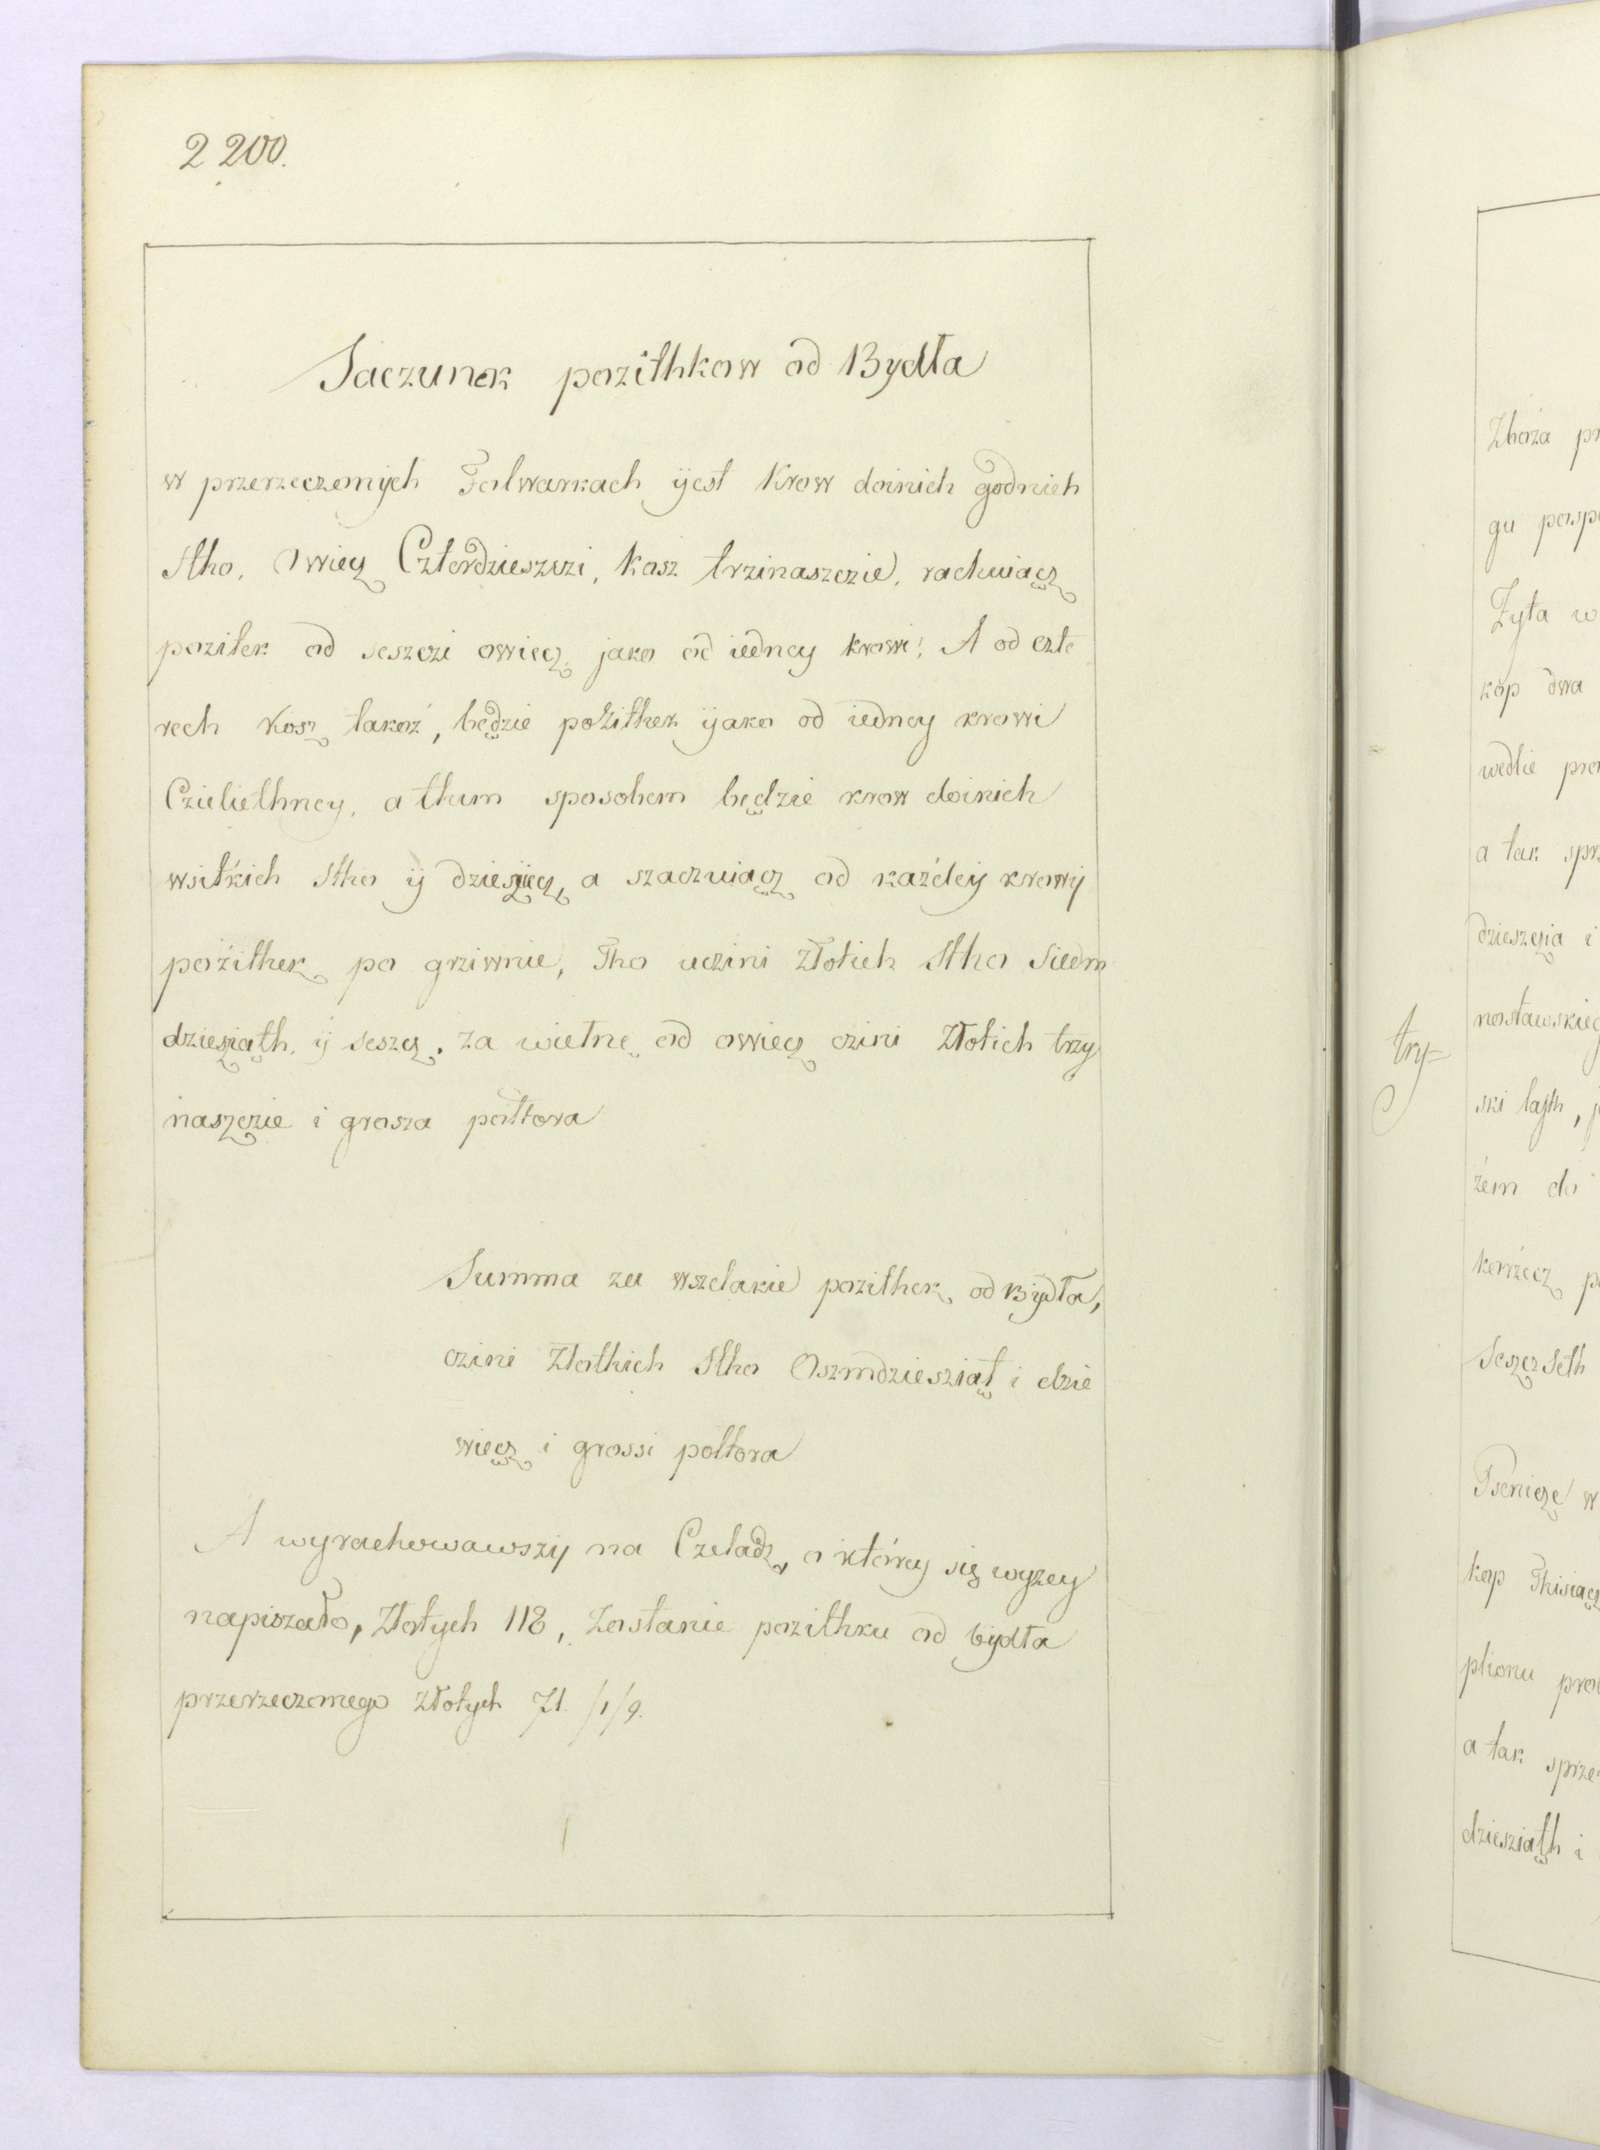 2 200.
Saczunek pozithkow od Bydła
w przerzeczonych Folwarkach yest Krow doinich godnich
Stho, Owiecz Czterdzieszczi, Kosz trzinaszczie, rachuiącz
pozitek od seszczi owiecz jako od iedney krowi! A od czte
rech Kosz takoż, będzie pożithek yako od iedney krowi
Czieliethney, a thim sposobem będzie krow doinich
wsitkich Stho y dziesięcz, a szaczuiącz od każdey krowy
pożithek po grziwnie, Tho uczini Złotich Stho Siedm
dziesiąth y seszcz. Za wietnę od owiecz czini Złotich trzy
naszczie i grosza połtora
Summa za wszelakie pozithek od Bydła,
czini Złothich Stho Oszmdziesziąt i dzie
więcz i grossi połtora
A wyrachowawszy na Czeladz, o którey się wyzey
napiszało, Złotych 118, Zostanie pozithku od bydła
przerzeczonego Złotych 71. /1/9.
try=
Zboża
gu
Zyta w
kop dwa
wedlie
a tak
dzieszęcia i
ski łasth,
żem do
korzecz
Seszcz Seth
Psenicze w
kop Thisiącz
plionu
a tak
dziesziąth i